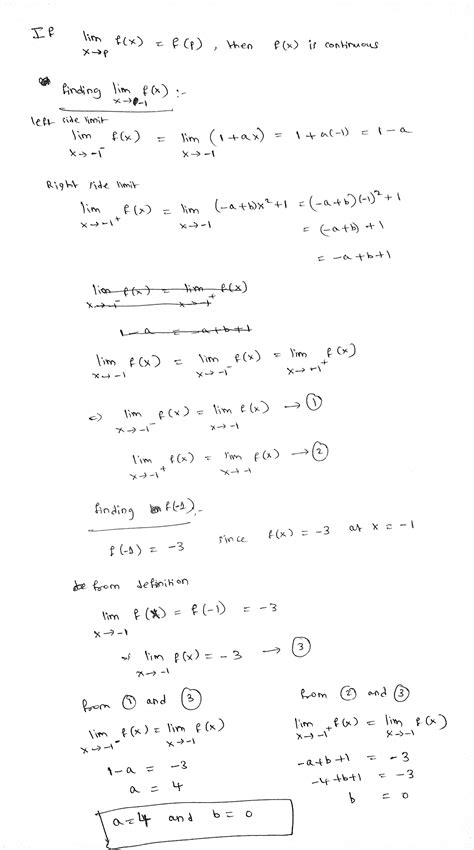 If lim x→p f(x) = f(p), then f(x) is continuous
finding lim x→-1 f(x) :-
left side limit
lim x→-1⁻ f(x) = lim x→-1 (1+ax) = 1+a(-1) = 1-a
Right side limit
lim x→-1⁺ f(x) = lim x→-1 (-a+b)x²+1 = (-a+b)(-1)²+1
= (-a+b)+1
= -a+b+1
lim x→-1⁻ f(x) = lim x→-1⁺ f(x)
1-a = -a+b+1
lim x→-1 f(x) = lim x→-1⁻ f(x) = lim x→-1⁺ f(x)
⇒ lim x→-1⁻ f(x) = lim x→-1 f(x) → ①
lim x→-1⁺ f(x) = lim x→-1 f(x) → ②
finding f(-1) :-
f(-1) = -3 since f(x) = -3 at x = -1
from definition
lim x→-1 f(x) = f(-1) = -3
lim x→-1 f(x) = -3 → ③
from ① and ③
lim x→-1⁻ f(x) = lim x→-1 f(x)
1-a = -3
a = 4
from ② and ③
lim x→-1⁺ f(x) = lim x→-1 f(x)
-a+b+1 = -3
-4+b+1 = -3
b = 0
a=4 and b = 0